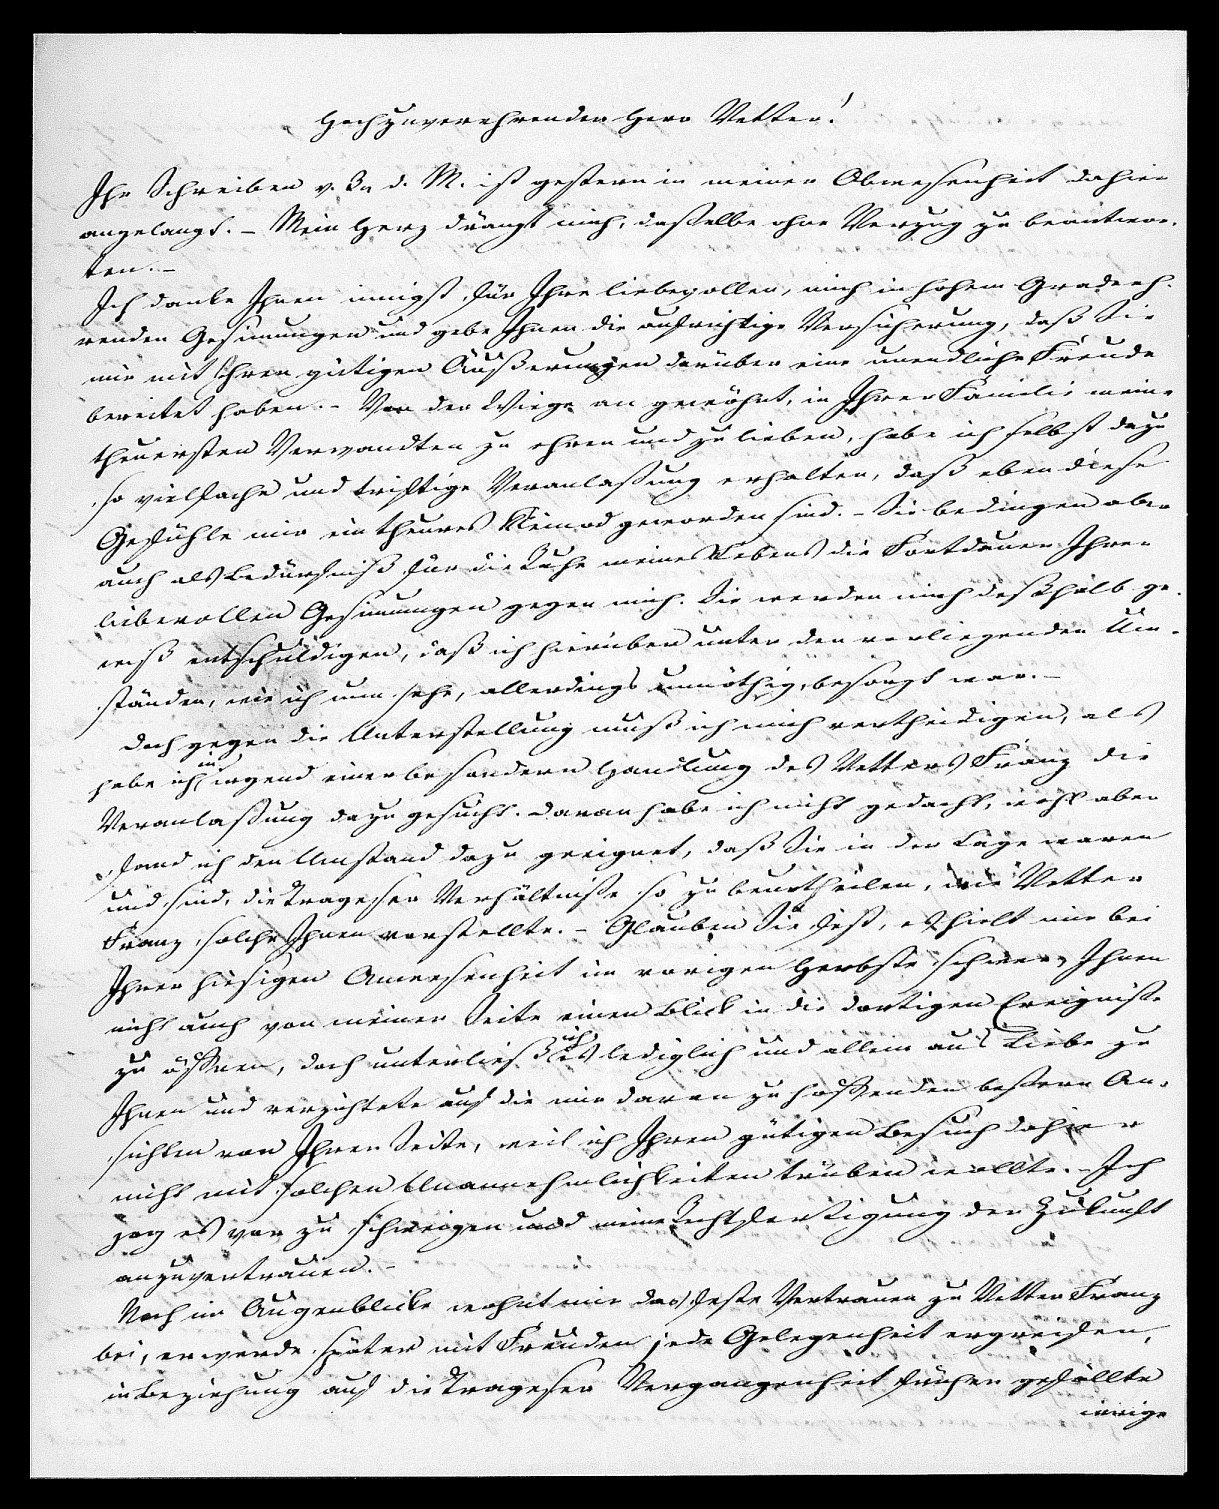 Hochzuverehrender Herr Vetter!
Ihr Schreiben v. 3n d. M. ist gestern in meiner Abwesenheit dahier
angelangt. – Mein Herz drängt mich, dasselbe ohne Verzug zu beantwor-
ten. –
Ich danke Ihnen innigst für Ihre liebevollen, mich in hohem Grade eh-
renden Gesinnungen und gebe Ihnen die aufrichtige Versicherung, daß Sie
mir mit Ihren gütigen Äußerungen darüber eine unendliche Freude
bereitet haben. – Von der Wiege an gewöhnt, in Ihrer Familie meine
theuersten Verwandten zu ehren und zu lieben, habe ich selbst dazu
so vielfache und triftige Veranlaßung erhalten, daß eben diese
Gefühle mir ein theures Kleinod geworden sind. – Sie bedingen aber
auch als Bedürfniß für die Ruhe meines Lebens die Fortdauer Ihrer
liebevollen Gesinnungen gegen mich. Sie werden mich deßhalb ge-
wiß entschuldigen, daß ich hierüber unter den vorliegenden Um-
ständen, wie ich nun sehe, allerdings unnöthig, besorgt war. –
Doch gegen die Unterstellung muß ich mich vertheidigen, als
habe ich in irgend einer besondern Handlung des Vetters Franz die
Veranlaßung dazu gesucht. Daran habe ich nicht gedacht, wohl aber
fand ich den Umstand dazu geeignet, daß Sie in der Lage waren
und sind, die Trageser Verhältniße so zu beurtheilen, wie Vetter
Franz solche Ihnen vorstellte. – Glauben Sie fest, es hielt mir bei
Ihrer hiesigen Anwesenheit im vorigen Herbste schwer, Ihnen
nicht auch von meiner Seite einen Blick in die dortigen Ereigniße
zu öffnen, doch unterließ ich es lediglich und allein aus Liebe zu
Ihnen und verzichtete auf die mir daran zu hoffenden bessern An-
sichten von Ihrer Seite, weil ich Ihren gütigen Besuch dahier
nicht mit solchen Unannehmlichkeiten trüben wollte. – Ich
zog es vor zu schweigen und meine Rechtfertigung der Zukunft
anzuvertrauen. –
Noch im Augenblicke wohnt mir das feste Vertrauen zu Vetter Franz
bei, er werde später mit Freuden jede Gelegenheit ergreifen,
in Beziehung auf die Trageser Vergangenheit früher gefällte
irrige